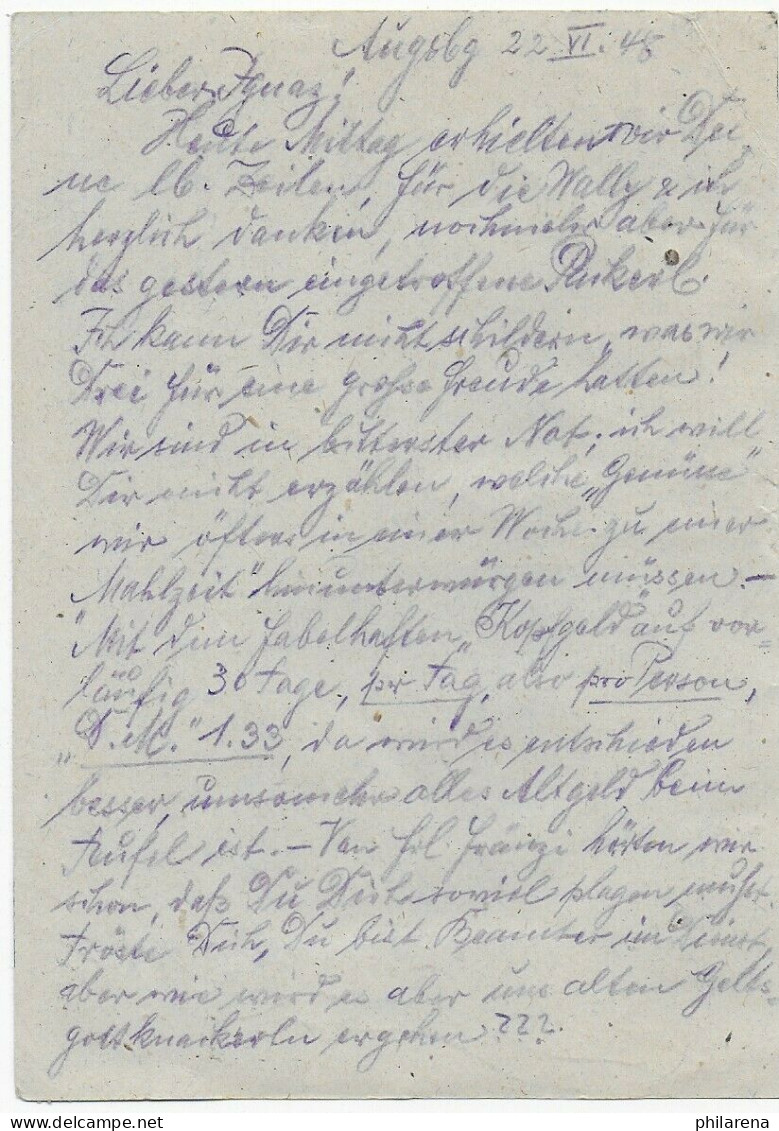 Augsbg 22 VI. 48
Lieber Ignaz!
Heute Mittag erhielten wir Dei-
ne lb. Zeilen, für die Wally & ich
herzlich danken, nochmehr aber für
das gestern eingetroffene Packerl.
Ich kann Dir nicht schildern, was wir
Drei für eine große Freude hatten!
Wir sind in bitterster Not; ich will
Dir nicht erzählen, welche „Genüsse"
wir öfters in einer Woche zu einer
"Mahlzeit" hinunterwürgen müssen. –
Mit dem fabelhaften „Kopfgeld" auf vor-
läufig 30 Tage, pr Tag, also pro Person,
„D.M." 1.33, da wird es entschieden
besser, umsomehr alles Altgeld beim
Teufel ist. – Von Frl Fränzi hörten wir
schon, daß Du Dich soviel plagen mußt.
Tröste Dich, Du bist Beamter im Dienst,
aber wie wird es aber uns alten
gottknackerln ergehen ???.
philarena